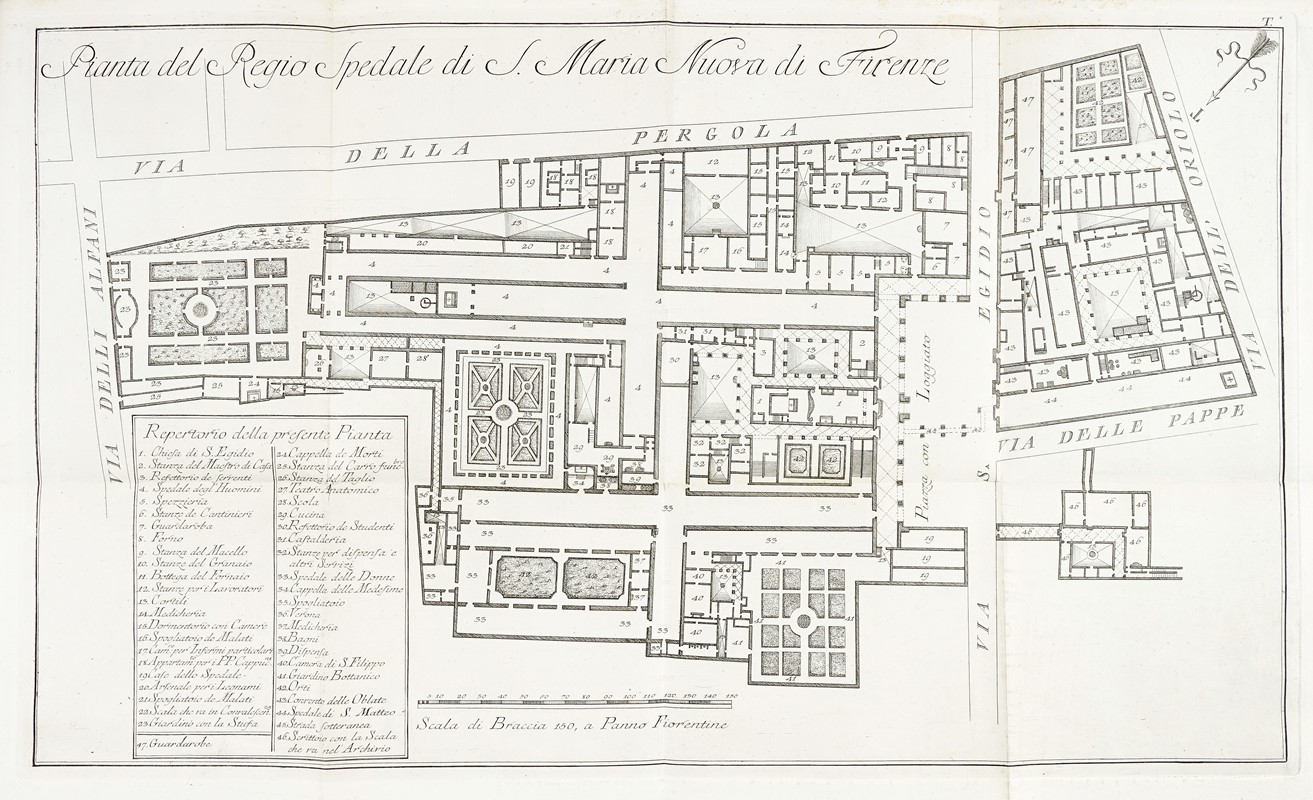 T.
Pianta del Regio Spedale di S. Maria Nuova di Firenze
VIA DELLA PERGOLA
VIA DELLI ALFANI
VIA S. EGIDIO
VIA DELL' ORIOLO
VIA DELLE PAPPE
Piazza con Loggiato
Repertorio della presente Pianta
1. Chiesa di S. Egidio
2. Stanza del Maestro di Casa
3. Refettorio de Serventi
4. Spedale degl'Huomini
5. Spezzieria
6. Stanze de Cantinieri
7. Guardaroba
8. Forno
9. Stanza del Macello
10. Stanze del Granaio
11. Bottega del Fornaio
12. Stanze per i Lavoratori
13. Cortili
14. Medicheria
15. Dormentorio con Camere
16. Spogliatoio de Malati
17. Cam.e per Infermi particolari
18. Appartam.o per i PP. Cappuc.ni
19. Case dello Spedale
20. Arsenale per i Legnami
21. Spogliatoio de Malati
22. Scala che va in
23. Giardino con la Stufa
47. Guardarobe
24. Cappella de Morti
25. Stanza del Carro funebre
26. Stanza del Taglio
27. Teatro Anatomico
28. Scola
29. Cucina
30. Refettorio de Studenti
31. Castalderia
32. Stanze per dispensa e
altri Servizi
33. Spedale delle Donne
34. Cappelle delle Medesime
35. Spogliatoio
36. Verona
37. Medicheria
38. Bagni
39. Dispensa
40. Camera di S. Filippo
41. Giardino Bottanico
42. Orti
43. Convento delle Oblate
44. Spedale di S. Matteo
45. Strada sotteranea
46. Scrittoio con la Scala
che va nel Archivio
10 20 30 40 50 60 70 80 90 100 110 120 130 140 150
Scala di Braccia 150, a Panno Fiorentine